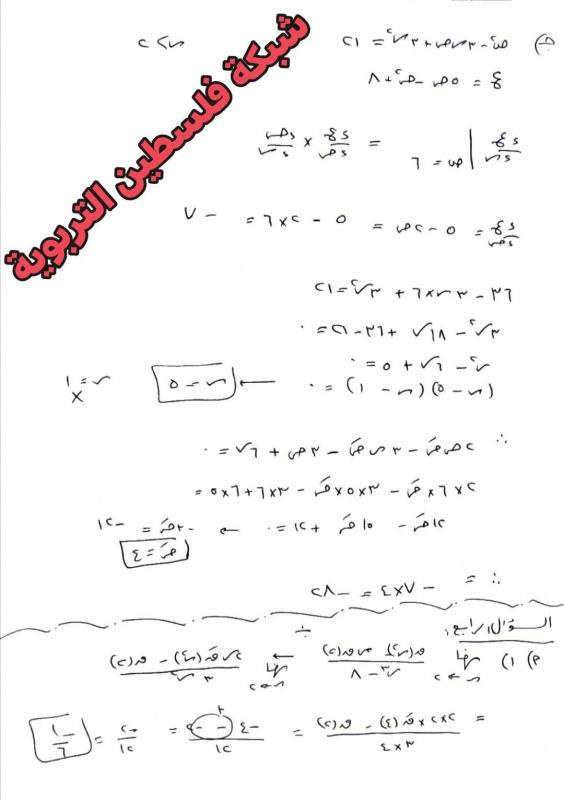 شبكة فلسطين التربوية
جـ) ص² - ٣س ص + ٣س² = ٢١ س > ٢
ع = ٥ص - ص² + ٨
دع/دس | ص = ٦ = دع/دص × دص/دس
دع/دص = ٥ - ٢ص = ٥ - ٢×٦ = -٧
٣٦ - ٣س×٦ + ٣س² = ٢١
٣س² - ١٨س + ٣٦ - ٢١ = ٠
س² - ٦س + ٥ = ٠
(س - ٥)(س - ١) = ٠ ← س = ٥ س = ١ ×
∴ ٢ص صَ - ٣س صَ - ٣ص + ٦س = ٠
٢×٦ صَ - ٣×٥×صَ - ٣×٦ + ٦×٥ = ٠
١٢صَ - ١٥صَ + ١٢ = ٠ ← -٣صَ = -١٢
صَ = ٤
∴ = -٧×٤ = -٢٨
السؤال الرابع:
١) نها س←٢ س³ - ٨ نها س←٢ ٣س²
= ٢×٢×قَ(٤) - ق(٢) / ٣×٤ = ١٢ = -٢/١٢ = -١/٦